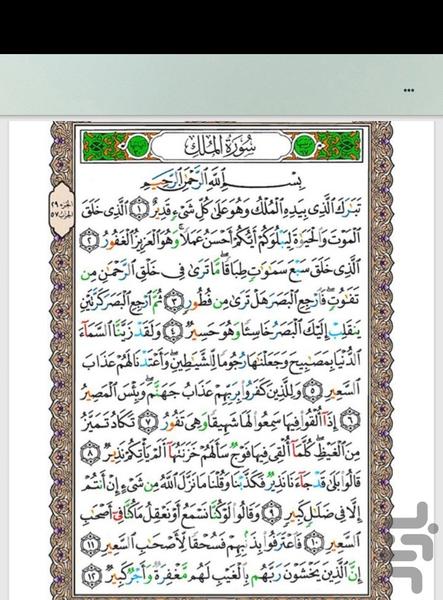 ...
سُورَةُ المُلْكِ
الجزء ٢٩
الحزب ٥٧
بِسْمِ اللَّهِ الرَّحْمَٰنِ الرَّحِيمِ
تَبَارَكَ الَّذِي بِيَدِهِ الْمُلْكُ وَهُوَ عَلَىٰ كُلِّ شَيْءٍ قَدِيرٌ ﴿١﴾ الَّذِي خَلَقَ
الْمَوْتَ وَالْحَيَاةَ لِيَبْلُوَكُمْ أَيُّكُمْ أَحْسَنُ عَمَلًا ۚ وَهُوَ الْعَزِيزُ الْغَفُورُ ﴿٢﴾
الَّذِي خَلَقَ سَبْعَ سَمَاوَاتٍ طِبَاقًا ۖ مَّا تَرَىٰ فِي خَلْقِ الرَّحْمَٰنِ مِن
تَفَاوُتٍ ۖ فَارْجِعِ الْبَصَرَ هَلْ تَرَىٰ مِن فُطُورٍ ﴿٣﴾ ثُمَّ ارْجِعِ الْبَصَرَ كَرَّتَيْنِ
يَنقَلِبْ إِلَيْكَ الْبَصَرُ خَاسِئًا وَهُوَ حَسِيرٌ ﴿٤﴾ وَلَقَدْ زَيَّنَّا السَّمَاءَ
الدُّنْيَا بِمَصَابِيحَ وَجَعَلْنَاهَا رُجُومًا لِّلشَّيَاطِينِ ۖ وَأَعْتَدْنَا لَهُمْ عَذَابَ
السَّعِيرِ ﴿٥﴾ وَلِلَّذِينَ كَفَرُوا بِرَبِّهِمْ عَذَابُ جَهَنَّمَ ۖ وَبِئْسَ الْمَصِيرُ
﴿٦﴾ إِذَا أُلْقُوا فِيهَا سَمِعُوا لَهَا شَهِيقًا وَهِيَ تَفُورُ ﴿٧﴾ تَكَادُ تَمَيَّزُ
مِنَ الْغَيْظِ ۖ كُلَّمَا أُلْقِيَ فِيهَا فَوْجٌ سَأَلَهُمْ خَزَنَتُهَا أَلَمْ يَأْتِكُمْ نَذِيرٌ ﴿٨﴾
قَالُوا بَلَىٰ قَدْ جَاءَنَا نَذِيرٌ فَكَذَّبْنَا وَقُلْنَا مَا نَزَّلَ اللَّهُ مِن شَيْءٍ إِنْ أَنتُمْ
إِلَّا فِي ضَلَالٍ كَبِيرٍ ﴿٩﴾ وَقَالُوا لَوْ كُنَّا نَسْمَعُ أَوْ نَعْقِلُ مَا كُنَّا فِي أَصْحَابِ
السَّعِيرِ ﴿١٠﴾ فَاعْتَرَفُوا بِذَنبِهِمْ فَسُحْقًا لِّأَصْحَابِ السَّعِيرِ ﴿١١﴾
إِنَّ الَّذِينَ يَخْشَوْنَ رَبَّهُم بِالْغَيْبِ لَهُم مَّغْفِرَةٌ وَأَجْرٌ كَبِيرٌ ﴿١٢﴾
بازار